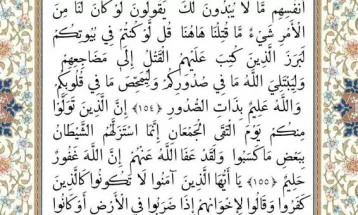 أَنفُسِهِم مَّا لَا يُبْدُونَ لَكَ يَقُولُونَ لَوْ كَانَ لَنَا مِنَ
الْأَمْرِ شَيْءٌ مَّا قُتِلْنَا هَاهُنَا قُل لَّوْ كُنتُمْ فِي بُيُوتِكُمْ
لَبَرَزَ الَّذِينَ كُتِبَ عَلَيْهِمُ الْقَتْلُ إِلَىٰ مَضَاجِعِهِمْ
وَلِيَبْتَلِيَ اللَّهُ مَا فِي صُدُورِكُمْ وَلِيُمَحِّصَ مَا فِي قُلُوبِكُمْ
وَاللَّهُ عَلِيمٌ بِذَاتِ الصُّدُورِ ﴿١٥٤﴾ إِنَّ الَّذِينَ تَوَلَّوْا
مِنكُمْ يَوْمَ الْتَقَى الْجَمْعَانِ إِنَّمَا اسْتَزَلَّهُمُ الشَّيْطَانُ
بِبَعْضِ مَا كَسَبُوا وَلَقَدْ عَفَا اللَّهُ عَنْهُمْ إِنَّ اللَّهَ غَفُورٌ
حَلِيمٌ ﴿١٥٥﴾ يَا أَيُّهَا الَّذِينَ آمَنُوا لَا تَكُونُوا كَالَّذِينَ
كَفَرُوا وَقَالُوا لِإِخْوَانِهِمْ إِذَا ضَرَبُوا فِي الْأَرْضِ أَوْ كَانُوا